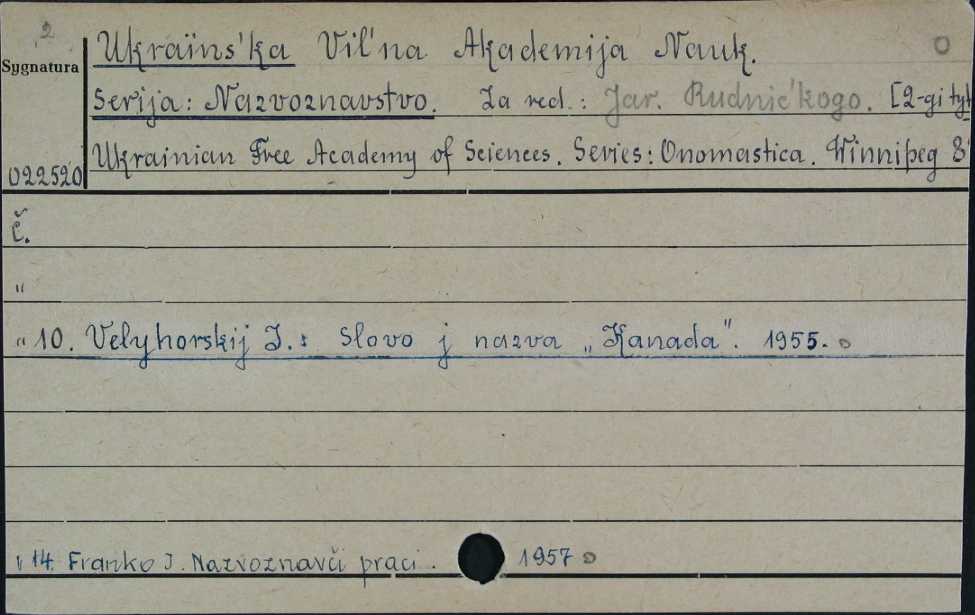 2
Ukraïns'ka Vil'na Akademija Nauk.
Sygnatura
Serija: Nazvoznavstvo. Za red.: Jar. Rudnić'kogo. [2-gi tyt
Ukrainian Free Academy of Sciences. Series: Onomastica. Winnipeg 8°
022520
č.
"
" 10. Velyhorskij J.: Slovo j nazva „Kanada". 1955.
" 14. Franko J. Nazvoznavči praci. 1957